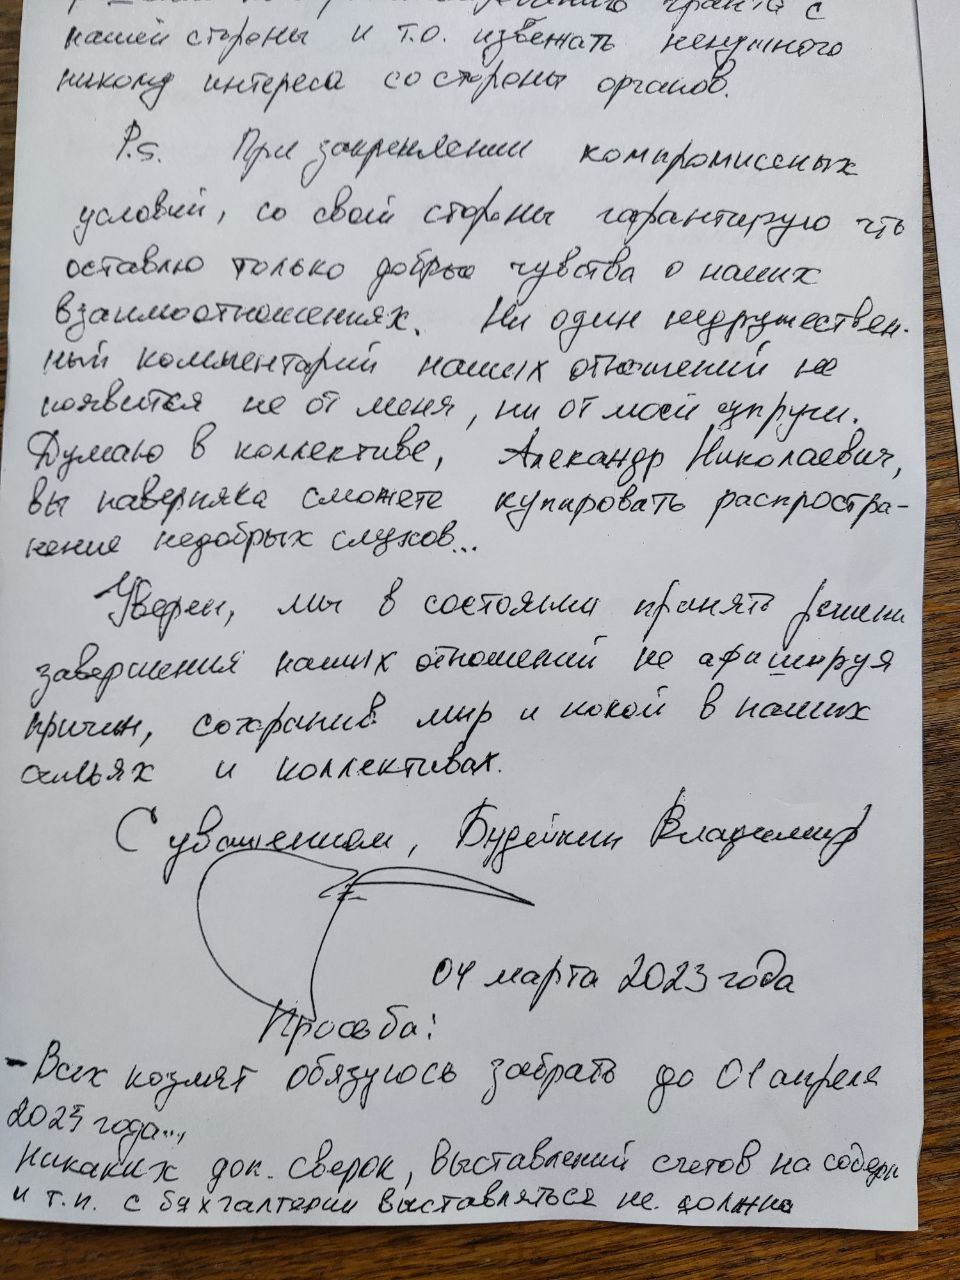 гранта с
нашей стороны и т.о. избежать ненужного
никому интереса со стороны органов.
P.s. При закреплении компромиссных
условий, со своей стороны гарантирую что
оставлю только добрые чувства о наших
взаимоотношениях. Ни один недружествен-
ный комментарий наших отношений не
появится не от меня, ни от моей супруги.
Думаю в коллективе, Александр Николаевич,
вы наверняка сможете купировать распростра-
нение недобрых слухов...
Уверен, мы в состоянии принять решени
завершения наших отношений не афишируя
причин, сохранив мир и покой в наших
семьях и коллективах.
С уважением, Будейкин Владимир
04 марта 2023 года
Просьба:
- Всех козлят обязуюсь забрать до 01 апреля
2023 года...,
никаких доп. сверок, выставлений счетов на содерж
и т.п. с бухгалтерии выставляться не должно